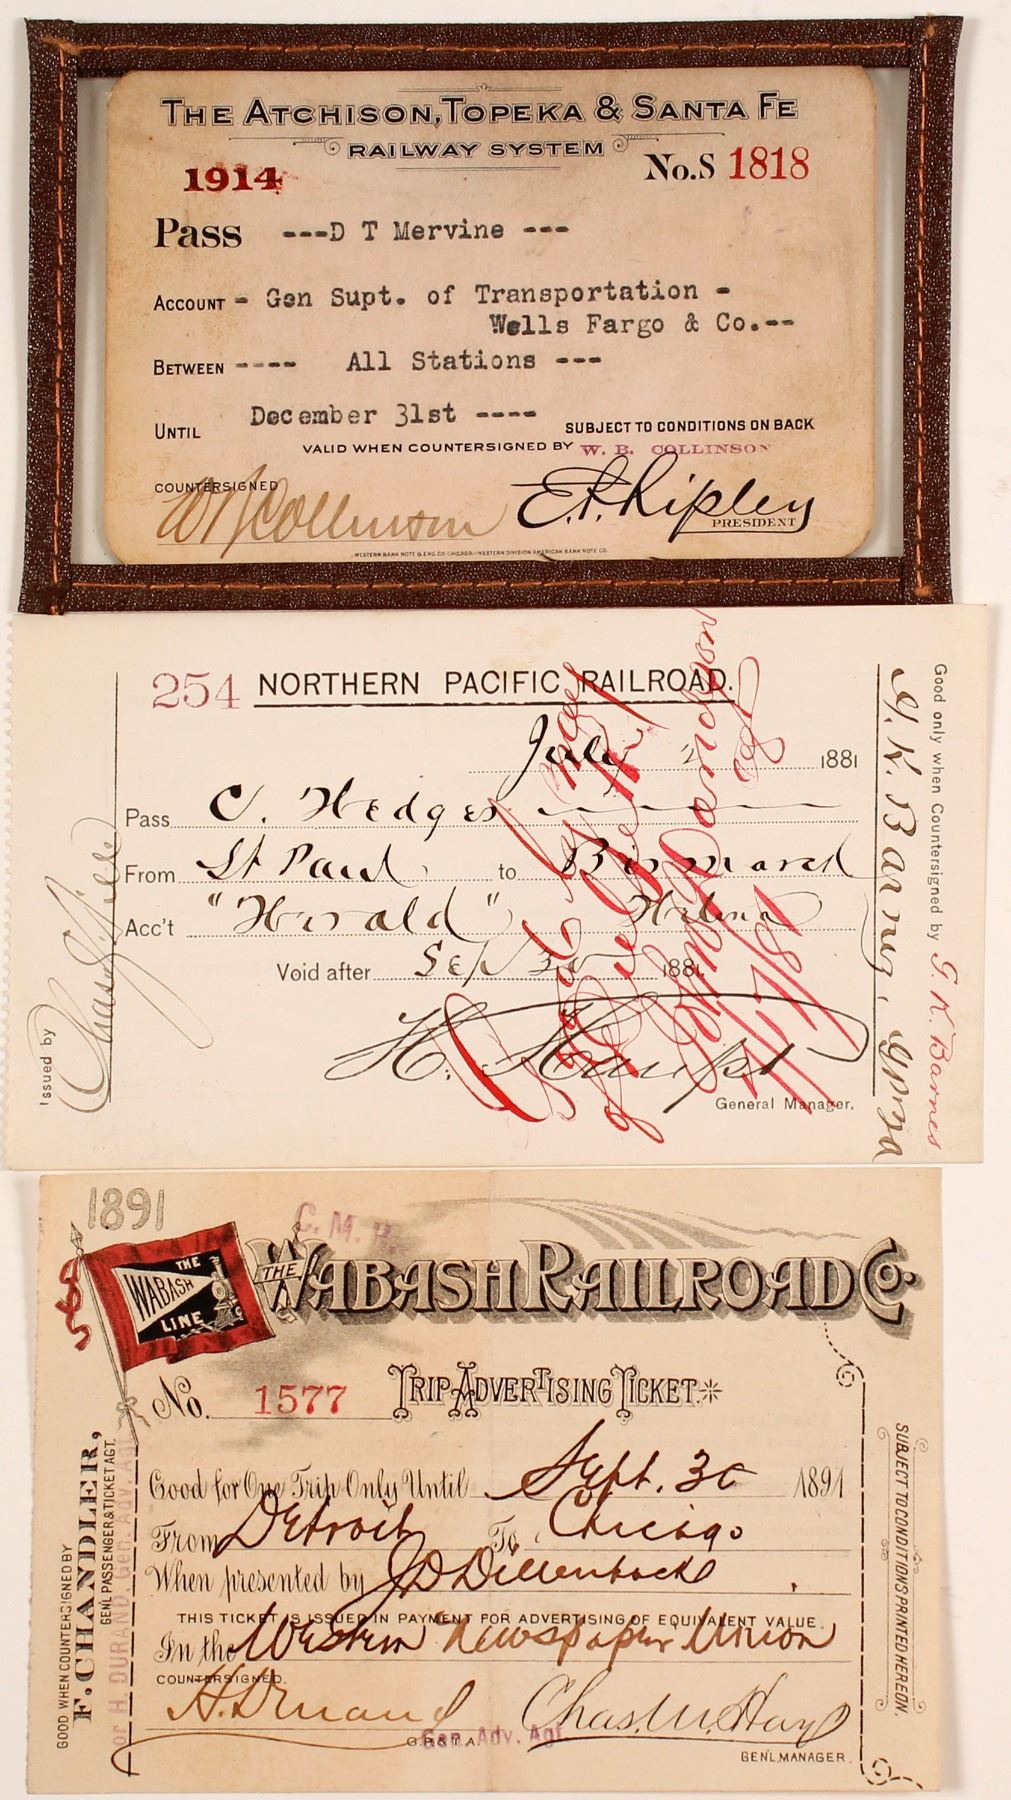 THE ATCHISON, TOPEKA & SANTA FE
RAILWAY SYSTEM
1914
No.S 1818
Pass ---D T Mervine ---
ACCOUNT - Gen Supt. of Transportation -
Wells Fargo & Co.--
BETWEEN ---- All Stations ---
UNTIL December 31st ----
SUBJECT TO CONDITIONS ON BACK
VALID WHEN COUNTERSIGNED BY W. B. COLLINSON
COUNTERSIGNED
W B Collinson
E.P. Ripley
PRESIDENT
WESTERN BANK NOTE & ENG. CO. CHICAGO.-WESTERN DIVISION AMERICAN BANK NOTE CO.
254 NORTHERN PACIFIC RAILROAD.
July 1881
Pass C. Hedges
From St Paul to Bismarck
Acc't "Herald" Helena
Void after Sep 30 1881.
H. Haupt
General Manager.
Issued by
Good only when Countersigned by G. K. Barnes
G. K. Barnes,
The Wabash Line
1891
C. M. H.
THE WABASH RAILROAD Co.
No. 1577
TRIP ADVERTISING TICKET.
Good for One Trip Only Until Sept. 30 1891
From Detroit To Chicago
When presented by J D Dillenback
THIS TICKET IS ISSUED IN PAYMENT FOR ADVERTISING OF EQUIVALENT VALUE
In the Western Newspaper Union
COUNTERSIGNED.
H. Durand
G.P.& T.A.
Gen. Adv. Agt.
Chas. M. Hays
GEN'L MANAGER.
GOOD WHEN COUNTERSIGNED BY
F. CHANDLER,
GEN'L PASSENGER & TICKET AGT.
or H. DURAND, Gen. Adv. Agt.
SUBJECT TO CONDITIONS PRINTED HEREON.